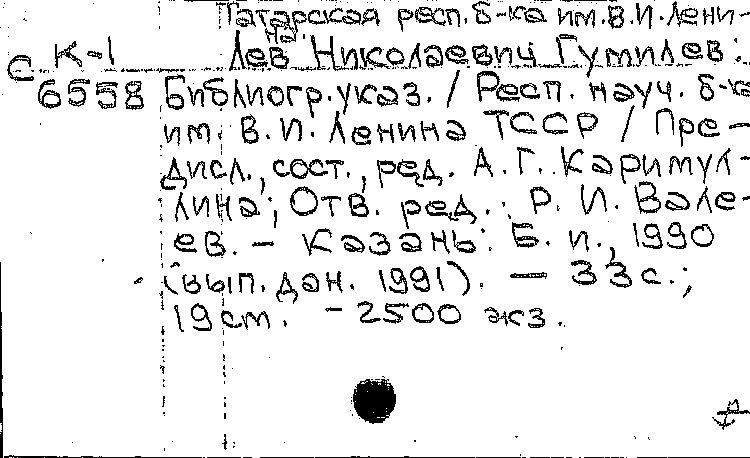 Татарская респ. б-ка им. В.И. Лени-
на.
С К-1 Лев Николаевич Гумилев:
6558 Библиогр. указ. / Респ. науч. б-ка
им. В. И. Ленина ТССР / Пре-
дисл., сост., ред. А. Г. Каримул-
лина; Отв. ред. Р. И. Вале-
ев. – Казань: Б. и., 1990
(вып. дан. 1991). – 33 с.;
19 см. – 2500 экз.